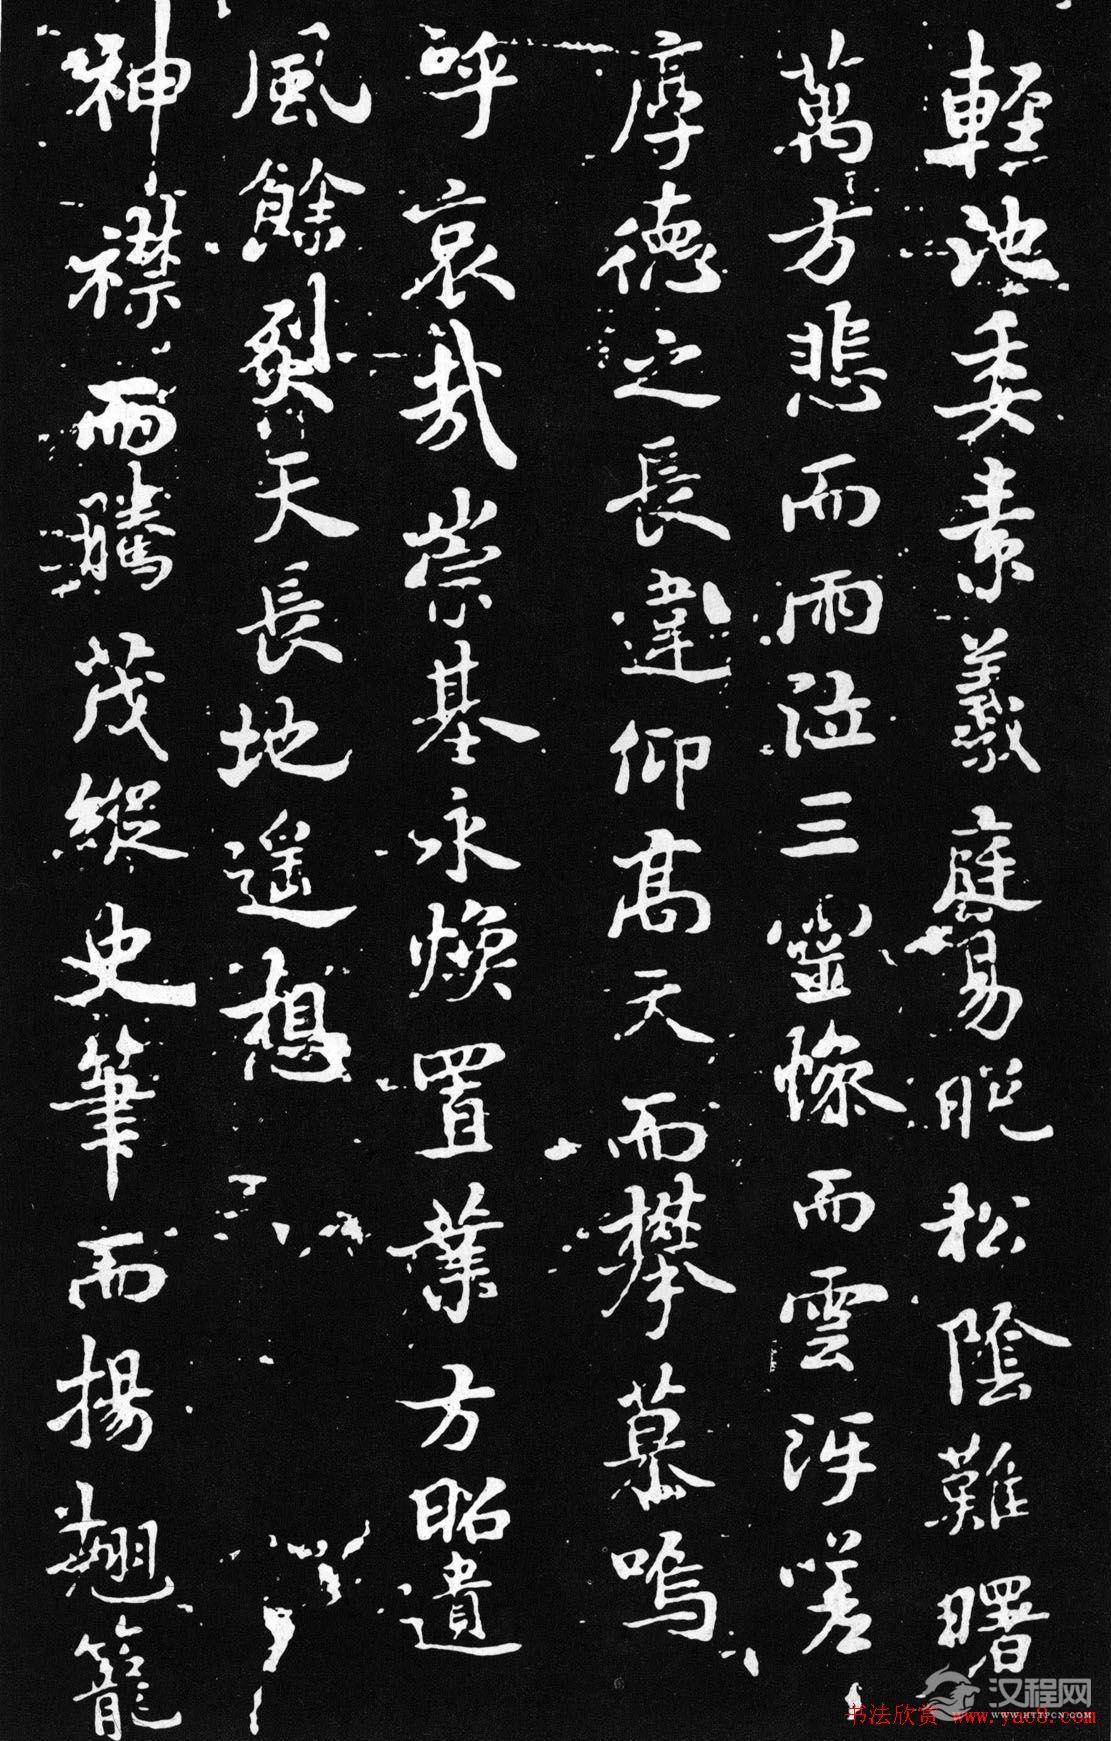 輕池委素羲庭易晚松陰難曙
萬方悲而雨泣三靈慘而雲沍嗟
厚德之長違仰高天而攀慕嗚
呼哀哉崇基永煥置業方昭遺
風餘烈天長地遥想
神襟而騰茂縱史筆而揚翹籠
汉程网
WWW.HTTPCN.COM
书法欣赏 www.yac8.com